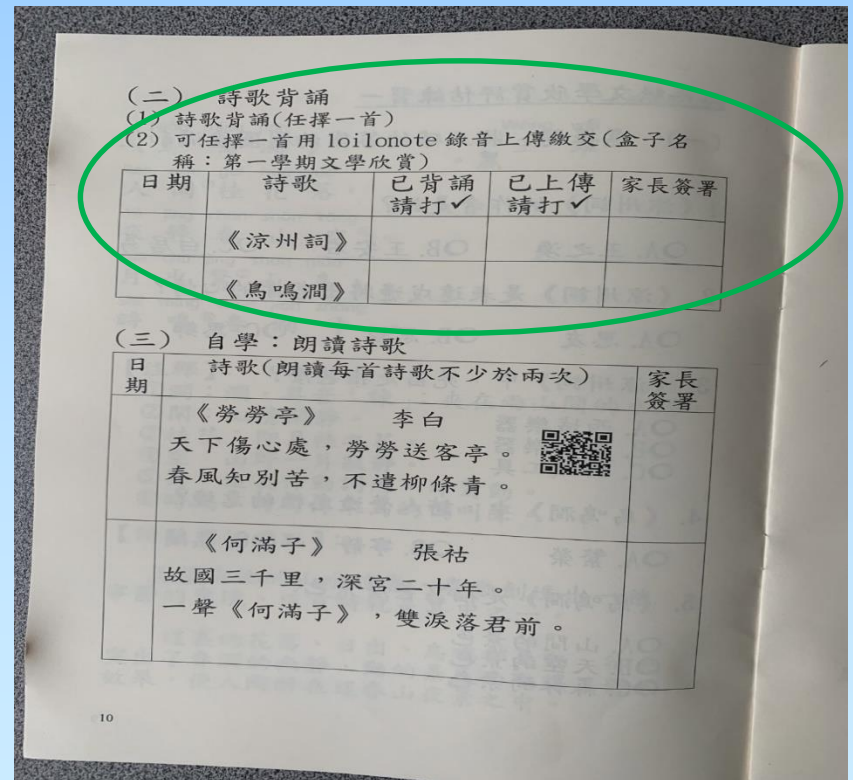 (二) 詩歌背誦
(1) 詩歌背誦(任擇一首)
(2) 可任擇一首用 loilonote 錄音上傳繳交(盒子名
稱：第一學期文學欣賞)
日期 詩歌 已背誦 已上傳 家長簽署
請打✓ 請打✓
《涼州詞》
《鳥鳴澗》
(三) 自學：朗讀詩歌
日期 詩歌(朗讀每首詩歌不少於兩次) 家長簽署
《勞勞亭》 李白
天下傷心處，勞勞送客亭。
春風知別苦，不遣柳條青。
《何滿子》 張祜
故國三千里，深宮二十年。
一聲《何滿子》，雙淚落君前。
10